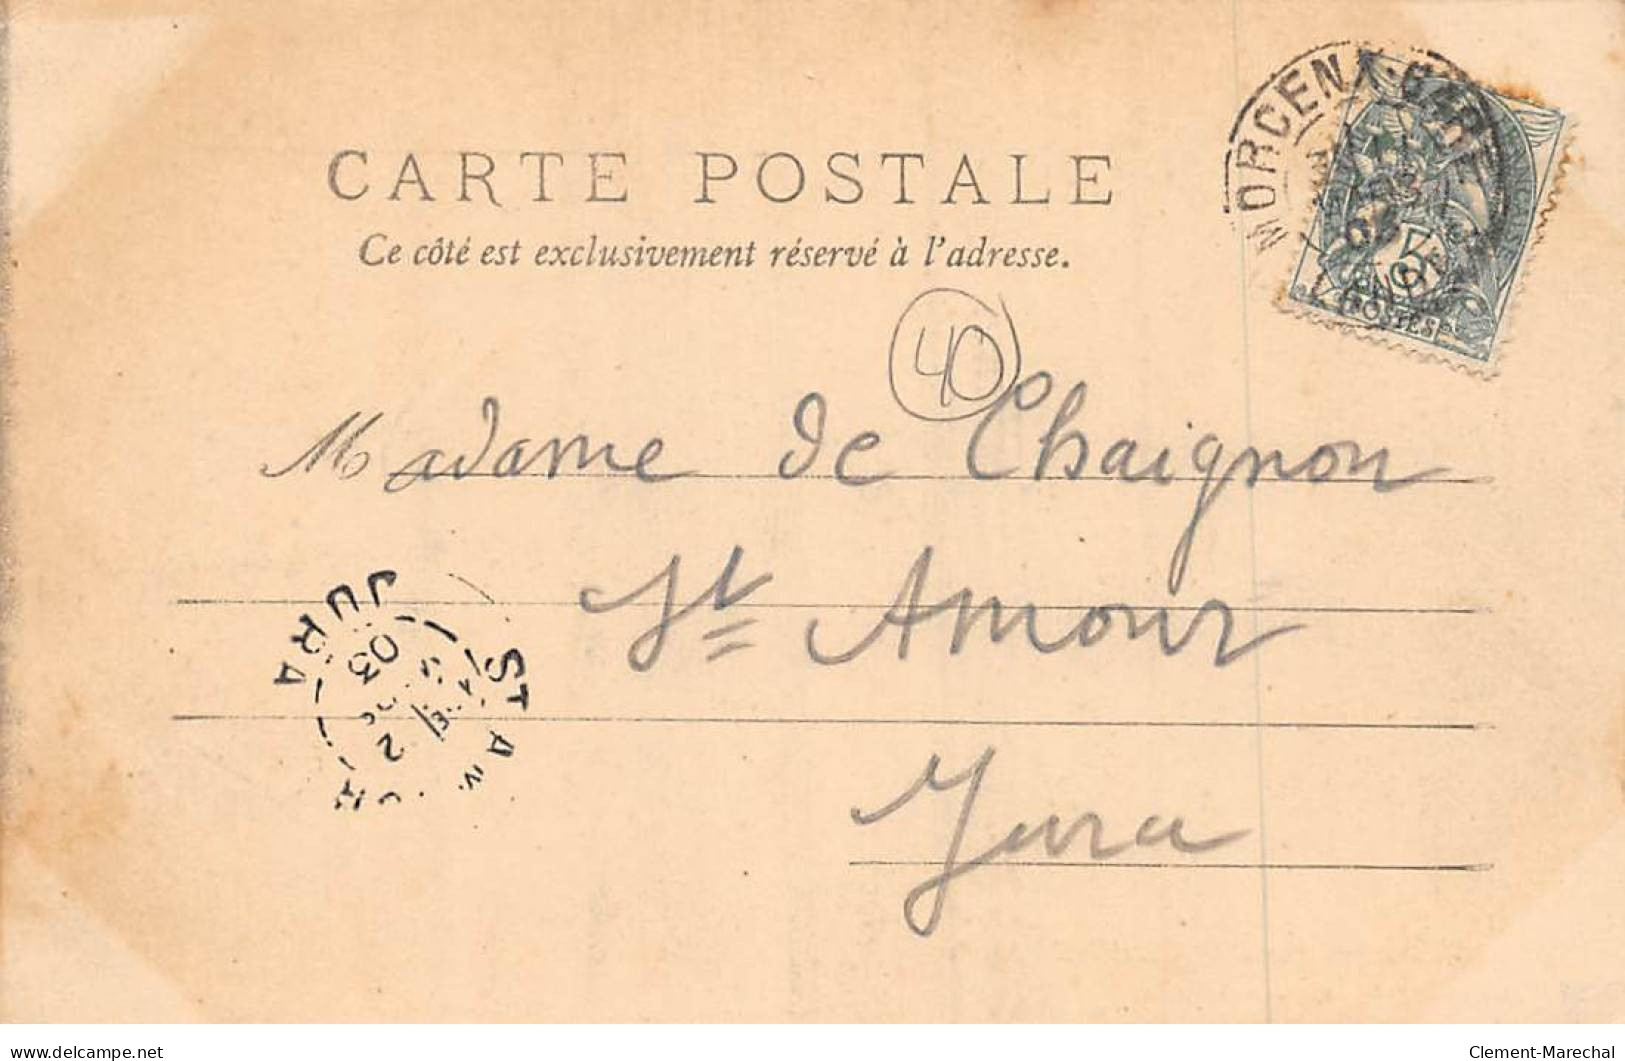 CARTE POSTALE
Ce côté est exclusivement réservé à l'adresse.
MORCENX·GARE
03
5
POSTES
40
Madame de Chaignon
St Amour
Jura
JURA
03
2
ST AM
delcampe.net
Clement-Marechal